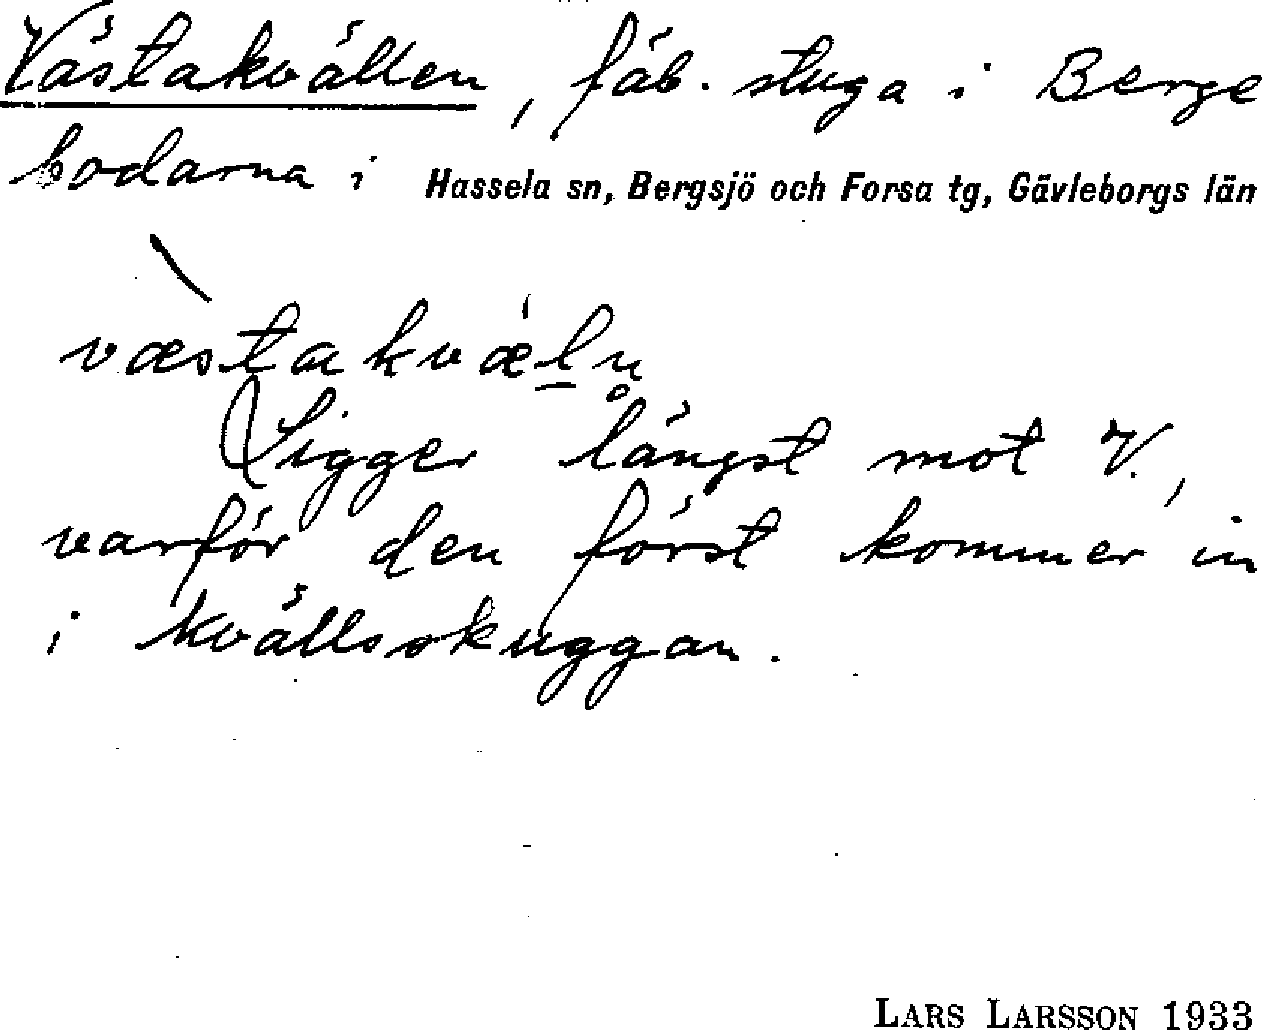 Västakvällen, fäb. stuga i Berge
bodarna i Hassela sn, Bergsjö och Forsa tg, Gävleborgs län
væ̀stakvǽl̠n̥
Ligger längst mot V.,
varför den först kommer in
i kvällsskuggan.
LARS LARSSON 1933